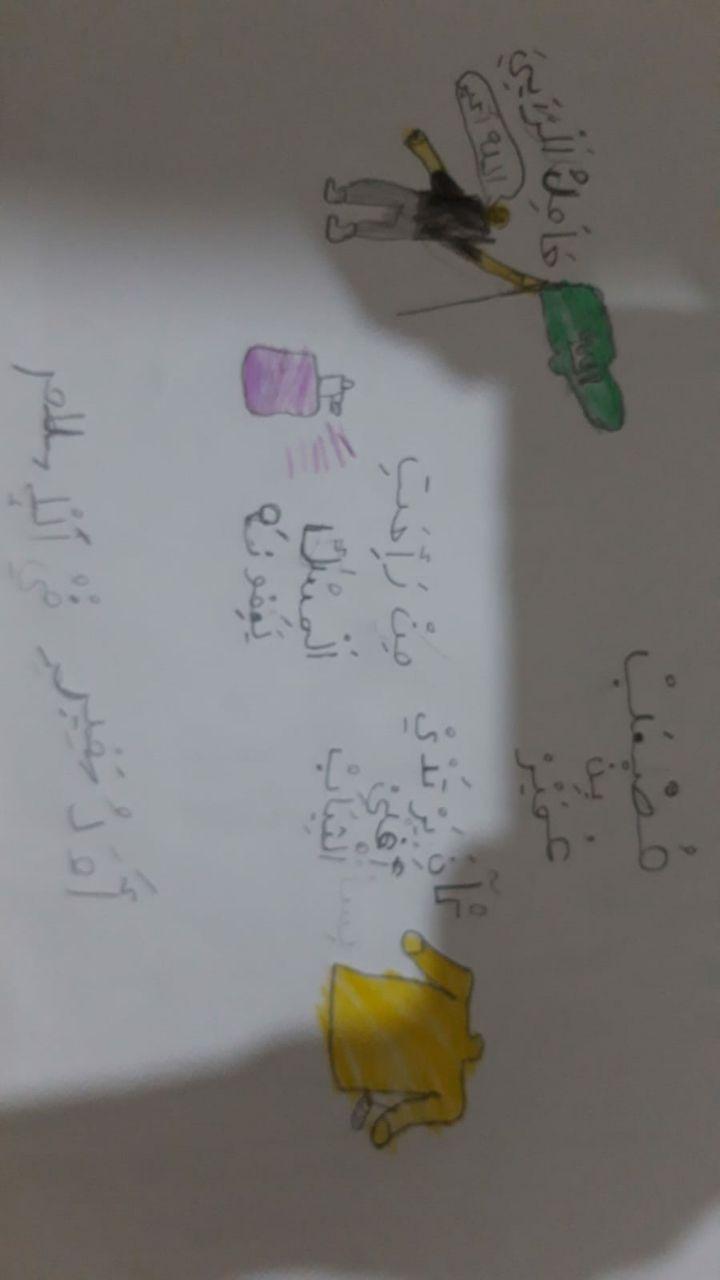 مُصْعَبْ
بِنْ
عُمَيْرْ
حَامِلْ اَلْرَايِيَ
الله
الله أكبر
كَآنَ يَرْتَدْيْ
أَغْلَىْ
اَلْثِيَابْ
مِنْ رَاِحَتِ
اَلْمِسْكْ
يَعِفُونَهُ
أَوَلُ سَفِير
فْيْ اَلْإِسلام